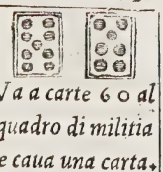 Va a carte 6 0 al
quadro di militia
e caua una carta.